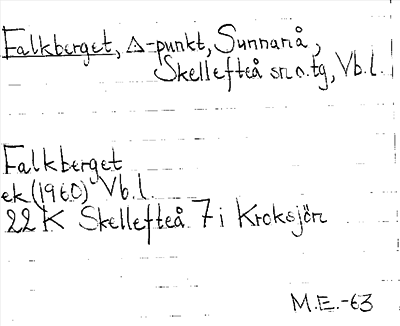 Falkberget, △-punkt, Sunnanå,
Skellefteå sn o. tg, Vb. l.
Falkberget
ek (1960) Vb. l.
22 K Skellefteå 7 i Kroksjön
M.E.-63